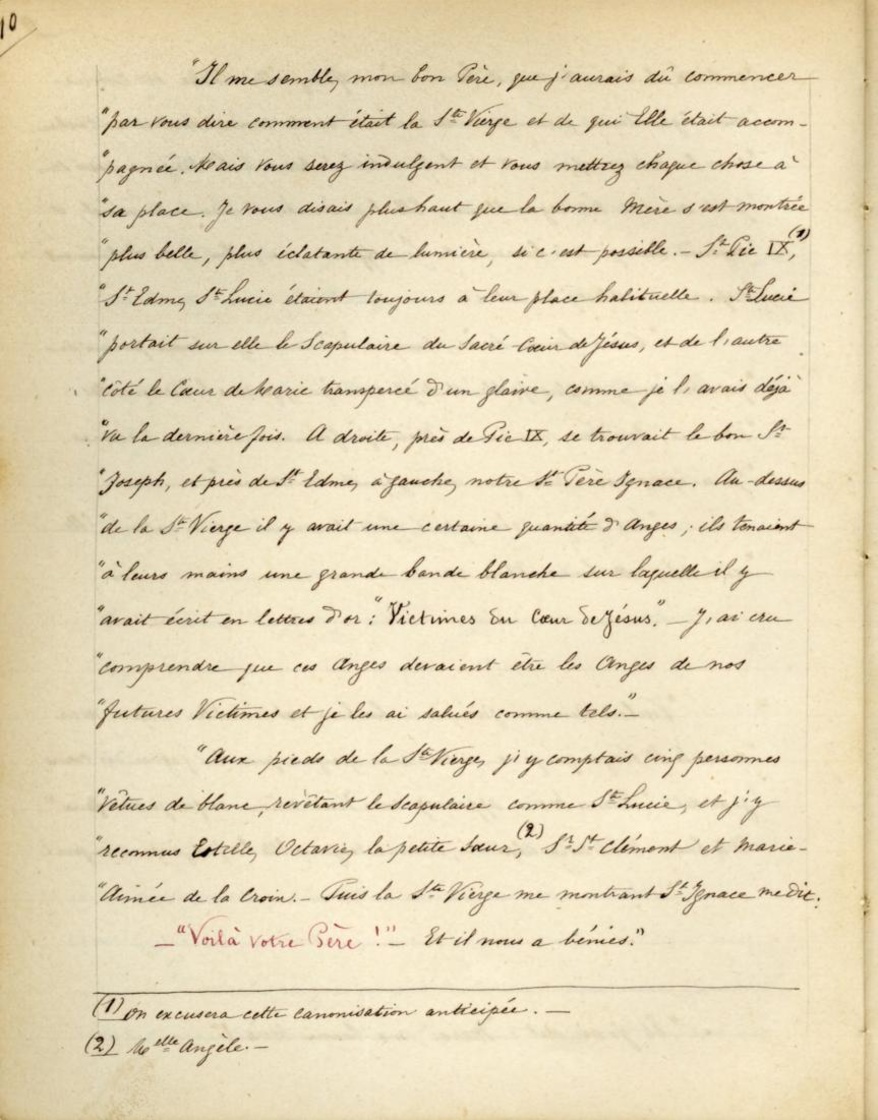 10
"Il me semble, mon bon Père, que j'aurais dû commencer
"par vous dire comment était la Ste Vierge et de qui Elle était accom-
"pagnée. Mais vous serez indulgent et vous mettrez chaque chose à
"sa place. Je vous disais plus haut que la bonne Mère s'est montrée
"plus belle, plus éclatante de lumière, si c'est possible. – St Pie IX,(1)
"St Edme, Ste Lucie étaient toujours à leur place habituelle. Ste Lucie
"portait sur elle le Scapulaire du Sacré Cœur de Jésus, et de l'autre
"côté le Cœur de Marie transpercé d'un glaive, comme je l'avais déjà
"vu la dernière fois. A droite, près de Pie IX, se trouvait le bon St
"Joseph, et près de St Edme, à gauche, notre St Père Ignace. Au-dessus
"de la Ste Vierge il y avait une certaine quantité d'Anges ; ils tenaient
"à leurs mains une grande bande blanche sur laquelle il y
"avait écrit en lettres d'or : "Victimes du Cœur de Jésus". – J'ai cru
"comprendre que ces Anges devaient être les Anges de nos
"futures Victimes et je les ai salués comme tels." –
"Aux pieds de la Ste Vierge, j'y comptais cinq personnes
"vêtues de blanc, revêtant le scapulaire comme Ste Lucie, et j'y
"reconnus Estelle, Octavie, la petite Sœur,(2) Sr St Clément et Marie-
"Aimée de la Croix. – Puis la Ste Vierge me montrant St Ignace me dit :
– "Voilà votre Père !" – Et il nous a bénies."
(1) On excusera cette canonisation anticipée. –
(2) Melle Angèle. –